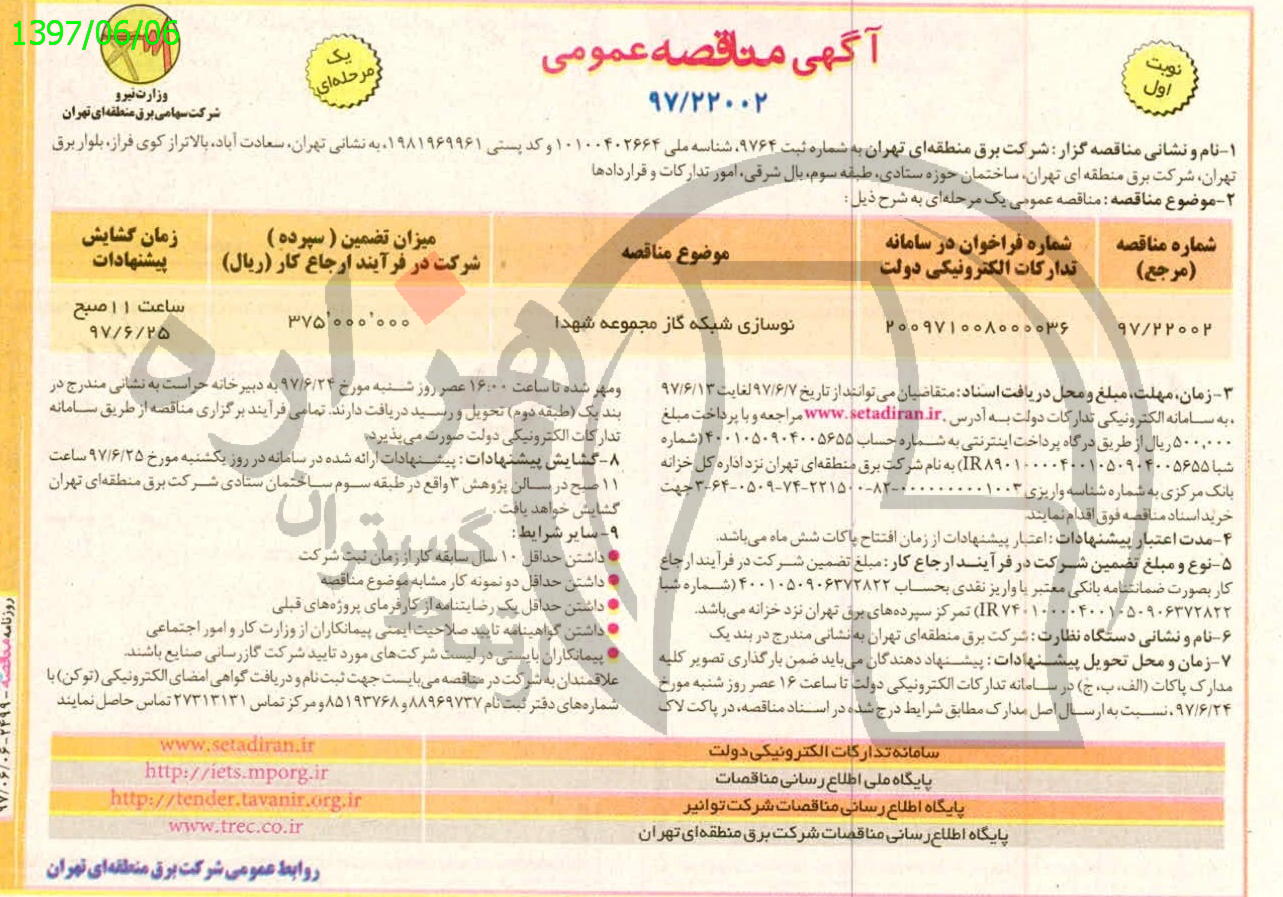 1397/06/06
وزارت نیرو
شرکت سهامی برق منطقه‌ای تهران
یک
مرحله‌ای
آگهی مناقصه عمومی
۹۷/۲۲۰۰۲
نوبت
اول
۱-نام و نشانی مناقصه گزار : شرکت برق منطقه‌ای تهران به شماره ثبت ۹۷۶۴، شناسه ملی ۱۰۱۰۰۴۰۲۶۶۴ و کد پستی ۱۹۸۱۹۶۹۹۶۱، به نشانی تهران، سعادت آباد، بالاتر از کوی فراز، بلوار برق
تهران، شرکت برق منطقه ای تهران، ساختمان حوزه ستادی، طبقه سوم، بال شرقی، امور تدارکات و قراردادها
۲-موضوع مناقصه : مناقصه عمومی یک مرحله‌ای به شرح ذیل :
شماره مناقصه (مرجع)
شماره فراخوان در سامانه تدارکات الکترونیکی دولت
موضوع مناقصه
میزان تضمین ( سپرده ) شرکت در فرآیند ارجاع کار (ریال)
زمان گشایش پیشنهادات
۹۷/۲۲۰۰۲
۲۰۰۹۷۱۰۰۸۰۰۰۰۳۶
نوسازی شبکه گاز مجموعه شهدا
۳۷۵٬۰۰۰٬۰۰۰
ساعت ۱۱ صبح
۹۷/۶/۲۵
۳-زمان، مهلت، مبلغ و محل دریافت اسناد : متقاضیان می توانند از تاریخ ۹۷/۶/۷ لغایت ۹۷/۶/۱۳
، به سامانه الکترونیکی تدارکات دولت به آدرس www.setadiran.ir. مراجعه و با پرداخت مبلغ
۵۰۰,۰۰۰ ریال از طریق درگاه پرداخت اینترنتی به شماره حساب ۴۰۰۱۰۵۰۹۰۴۰۰۵۶۵۵ (شماره
شبا IR۸۹۰۱۰۰۰۰۴۰۰۱۰۵۰۹۰۴۰۰۵۶۵۵) به نام شرکت برق منطقه‌ای تهران نزد اداره کل خزانه
بانک مرکزی به شماره شناسه واریزی جهت
خرید اسناد مناقصه فوق اقدام نمایند.
۴-مدت اعتبار پیشنهادات : اعتبار پیشنهادات از زمان افتتاح پاکات شش ماه می‌باشد.
۵-نوع و مبلغ تضمین شرکت در فرآیند ارجاع کار : مبلغ تضمین شرکت در فرآیند ارجاع
کار بصورت ضمانتنامه بانکی معتبر یا واریز نقدی بحساب ۴۰۰۱۰۵۰۹۰۶۳۷۲۸۲۲ (شماره شبا
IR۷۴۰۱۰۰۰۰۴۰۰۱۰۵۰۹۰۶۳۷۲۸۲۲) تمرکز سپرده‌های برق تهران نزد خزانه می‌باشد.
۶-نام و نشانی دستگاه نظارت : شرکت برق منطقه‌ای تهران به نشانی مندرج در بند یک
۷-زمان و محل تحویل پیشنهادات : پیشنهاد دهندگان می‌باید ضمن بارگذاری تصویر کلیه
مدارک پاکات (الف، ب، ج) در سامانه تدارکات الکترونیکی دولت تا ساعت ۱۶ عصر روز شنبه مورخ
۹۷/۶/۲۴، نسبت به ارسال اصل مدارک مطابق شرایط درج شده در اسناد مناقصه، در پاکت لاک
ومهر شده تا ساعت ۱۶:۰۰ عصر روز شنبه مورخ ۹۷/۶/۲۴ به دبیرخانه حراست به نشانی مندرج در
بند یک (طبقه دوم) تحویل و رسید دریافت دارند. تمامی فرآیند برگزاری مناقصه از طریق سامانه
تدارکات الکترونیکی دولت صورت می‌پذیرد.
۸-گشایش پیشنهادات : پیشنهادات ارائه شده در سامانه در روز یکشنبه مورخ ۹۷/۶/۲۵ ساعت
۱۱ صبح در سالن پژوهش ۳ واقع در طبقه سوم ساختمان ستادی شرکت برق منطقه‌ای تهران
گشایش خواهد یافت.
۹-سایر شرایط :
● داشتن حداقل ۱۰ سال سابقه کار از زمان ثبت شرکت
● داشتن حداقل دو نمونه کار مشابه موضوع مناقصه
● داشتن حداقل یک رضایتنامه از کارفرمای پروژه‌های قبلی
● داشتن گواهینامه تایید صلاحیت ایمنی پیمانکاران از وزارت کار و امور اجتماعی
● پیمانکاران بایستی در لیست شرکت‌های مورد تایید شرکت گازرسانی صنایع باشند.
علاقمندان به شرکت در مناقصه می‌بایست جهت ثبت نام و دریافت گواهی امضای الکترونیکی (توکن) با
شماره‌های دفتر ثبت نام ۸۸۹۶۹۷۳۷ و ۸۵۱۹۳۷۶۸ و مرکز تماس ۲۷۳۱۳۱۳۱ تماس حاصل نمایند
سامانه تدارکات الکترونیکی دولت www.setadiran.ir
پایگاه ملی اطلاع رسانی مناقصات http://iets.mporg.ir
پایگاه اطلاع رسانی مناقصات شرکت توانیر http://tender.tavanir.org.ir
پایگاه اطلاع رسانی مناقصات شرکت برق منطقه‌ای تهران www.trec.co.ir
روابط عمومی شرکت برق منطقه‌ای تهران
روزنامه مناقصه - ۲۴۹۹-۹۷/۰۶/۰۶
هزاره
گستران